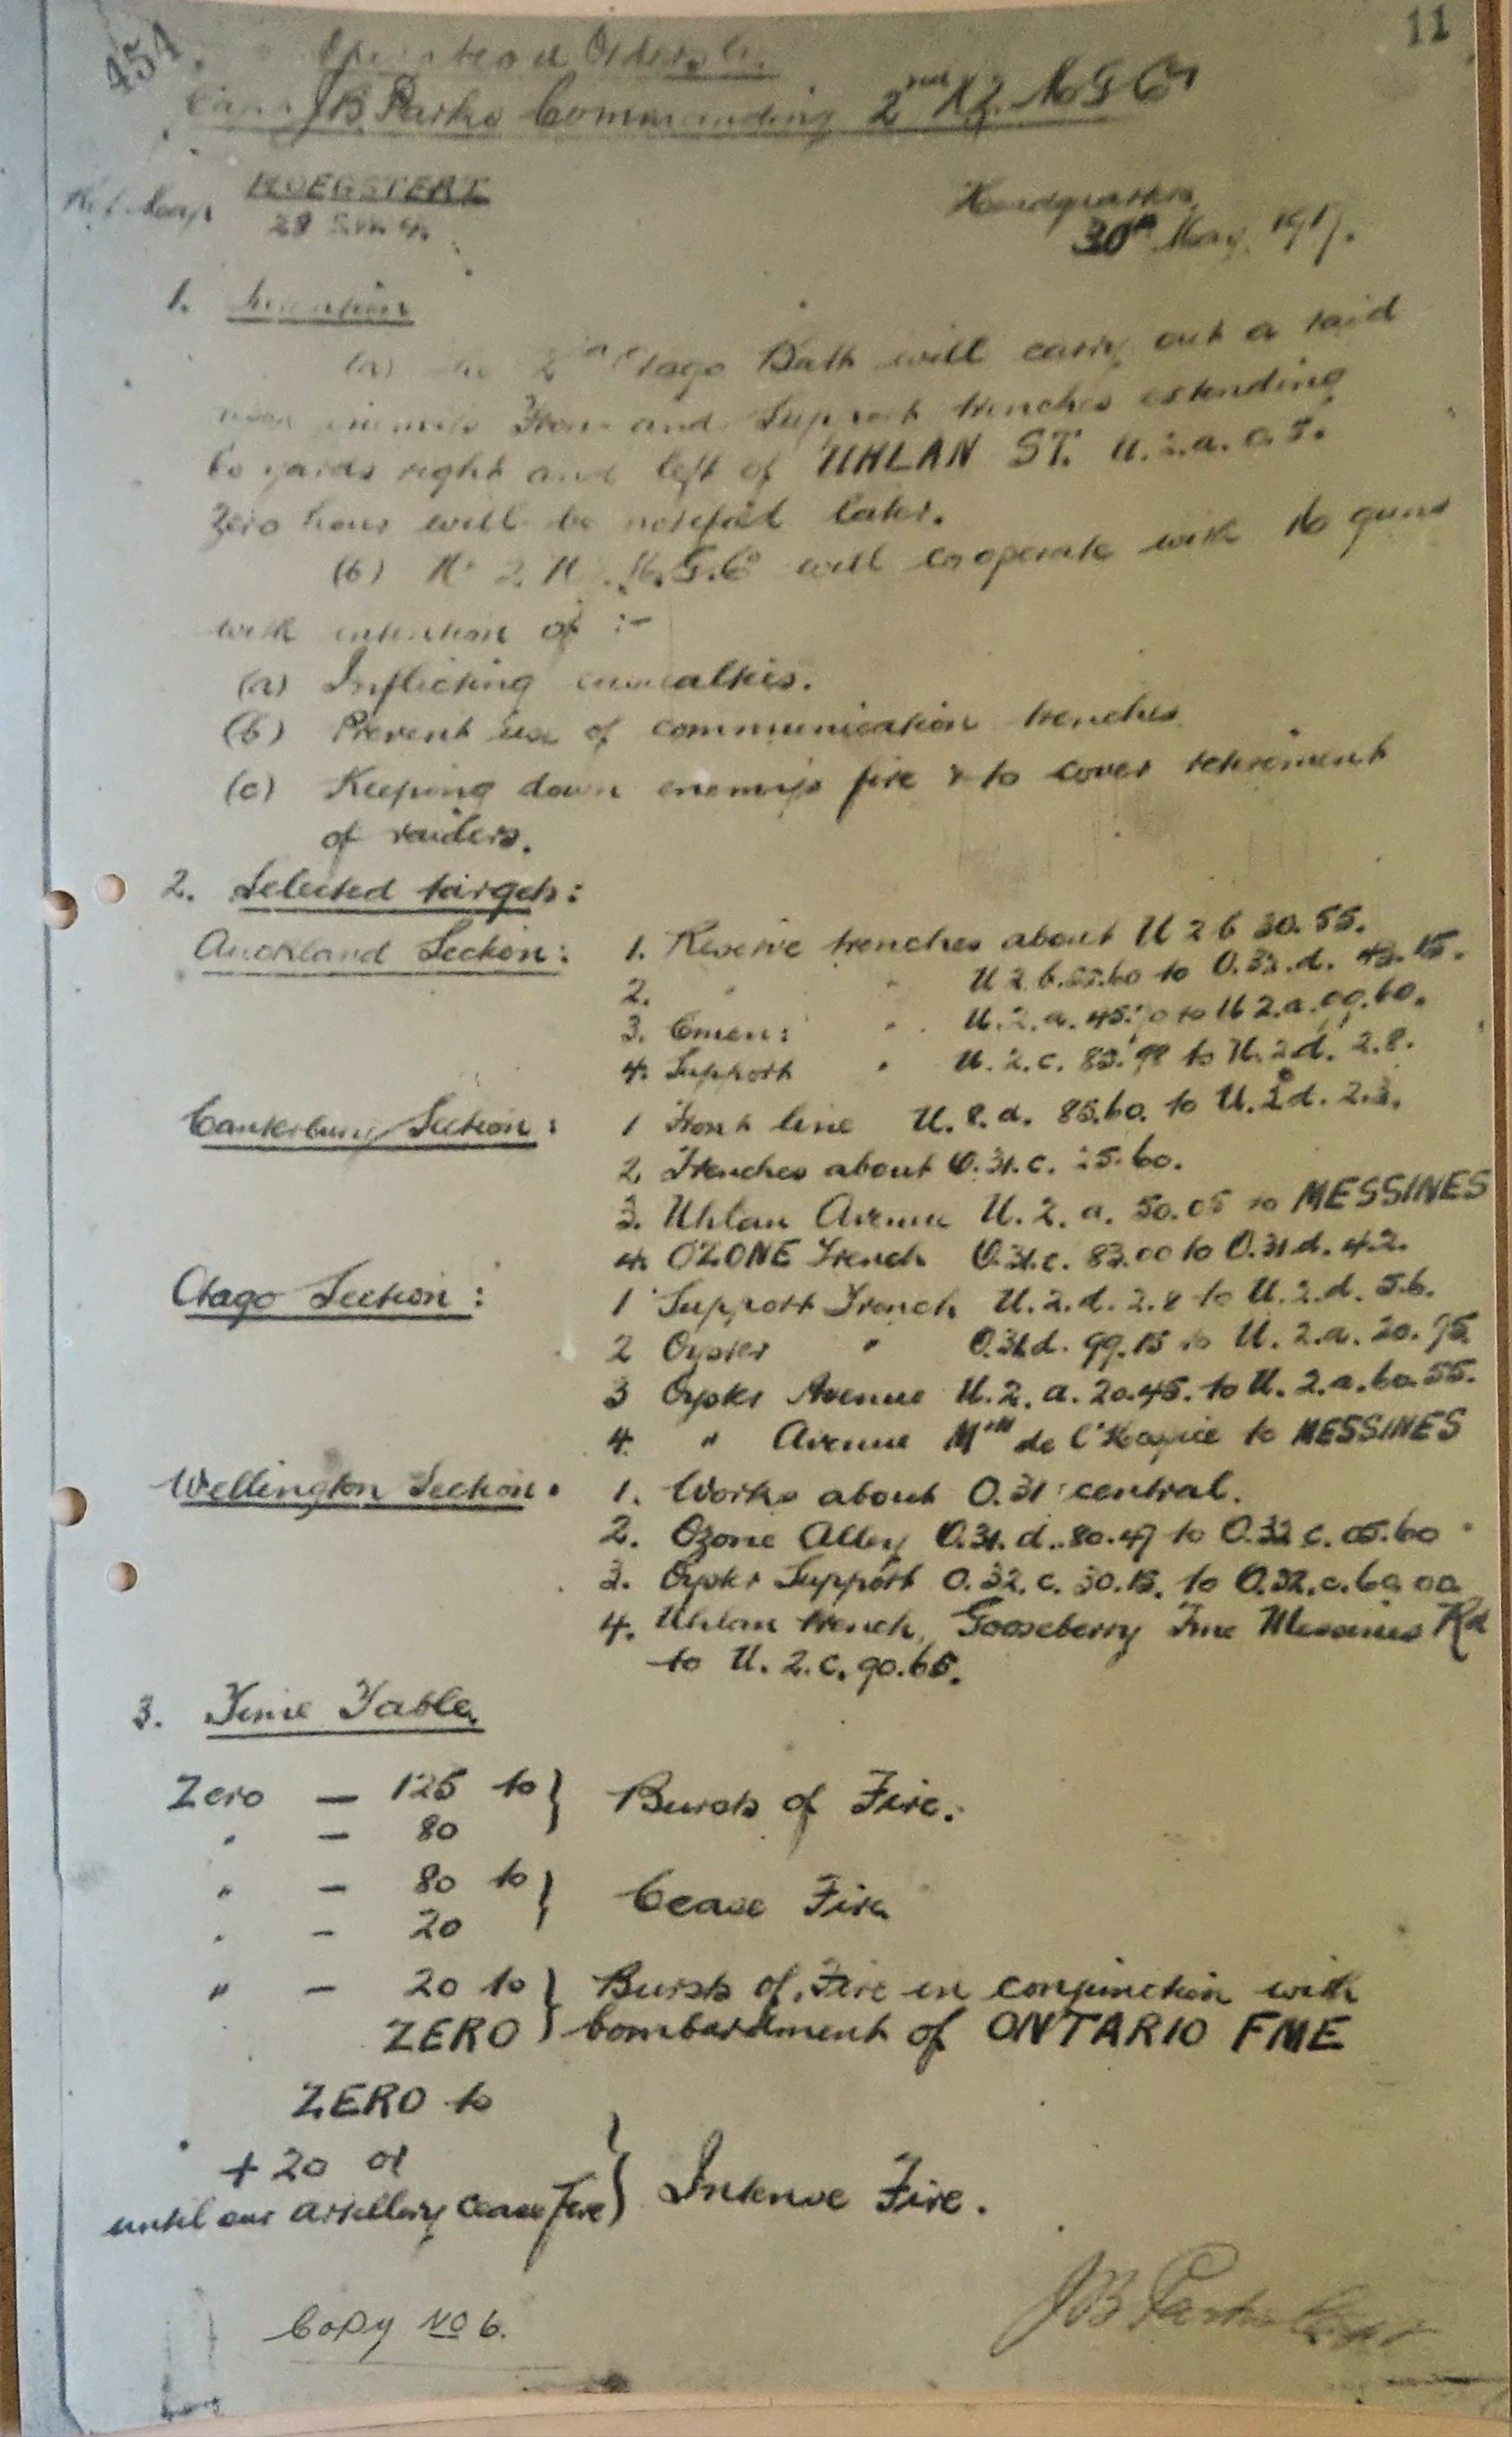 454 11
Operational Orders by
Capt J B Parks Commanding 2nd N.Z. M G Coy
Ref. Map PLOEGSTERT Headquarters
28 S.W. 4. 30th May 1917.
1. Intention
(a) The 2nd Otago Batt will carry out a raid
enemy's Front and Support trenches extending
60 yards right and left of UHLAN ST. U.2.a.0.5.
Zero hour will be notified later.
(b) No 2. N. M.G.Co will cooperate with 16 guns
with intention of :-
(a) Inflicting casualties.
(b) Prevent use of communication trenches
(c) Keeping down enemys fire & to cover retirement
of raiders.
2. Selected targets:
Auckland Section: 1. Reserve trenches about U 2 b 30.55.
2. " " U 2 b. .60 to O.32.d. 43.15.
3. " U.2.a.45. to U 2.a.00.60.
4. Support " U.2.c. 83.98 to U.2d. 2.8.
Canterbury Section: 1 Front line U.8.a. 85.60. to U.2d. 2.3.
2 Trenches about O.31.c. 25.60.
3. Uhlan Avenue U.2.a. 50.05 to MESSINES
4. OZONE Trench O.31.c. 83.00 to O.31d. 4.2.
Otago Section: 1 Support Trench U.2.d. 2.8 to U.2.d. 5.6.
2 Oyster " O.31.d. 99.15 to U.2.a. 20.95
3 Oyster Avenue U.2.a. 20.45. to U.2.a. 60.55.
4. " Avenue Min de l'Hospice to MESSINES
Wellington Section: 1. Works about O.31 central.
2. Ozone Alley O.31.d..80.47 to O.32 c. 05.60
3. Oyster Support O.32.c. 30.15. to O.32.c.60.00
4. Uhlan trench, Gooseberry Fme Messines Rd
to U.2.c. 90.65.
3. Time Table
Zero — 125 to } Bursts of Fire.
" — 80
" — 80 to } Cease Fire
" — 20
" — 20 to } Bursts of Fire in conjunction with
ZERO } bombardment of ONTARIO FME
ZERO to
+ 20 or
until our artillery Cease Fire } Intense Fire.
Copy No 6. J B Parks Capt